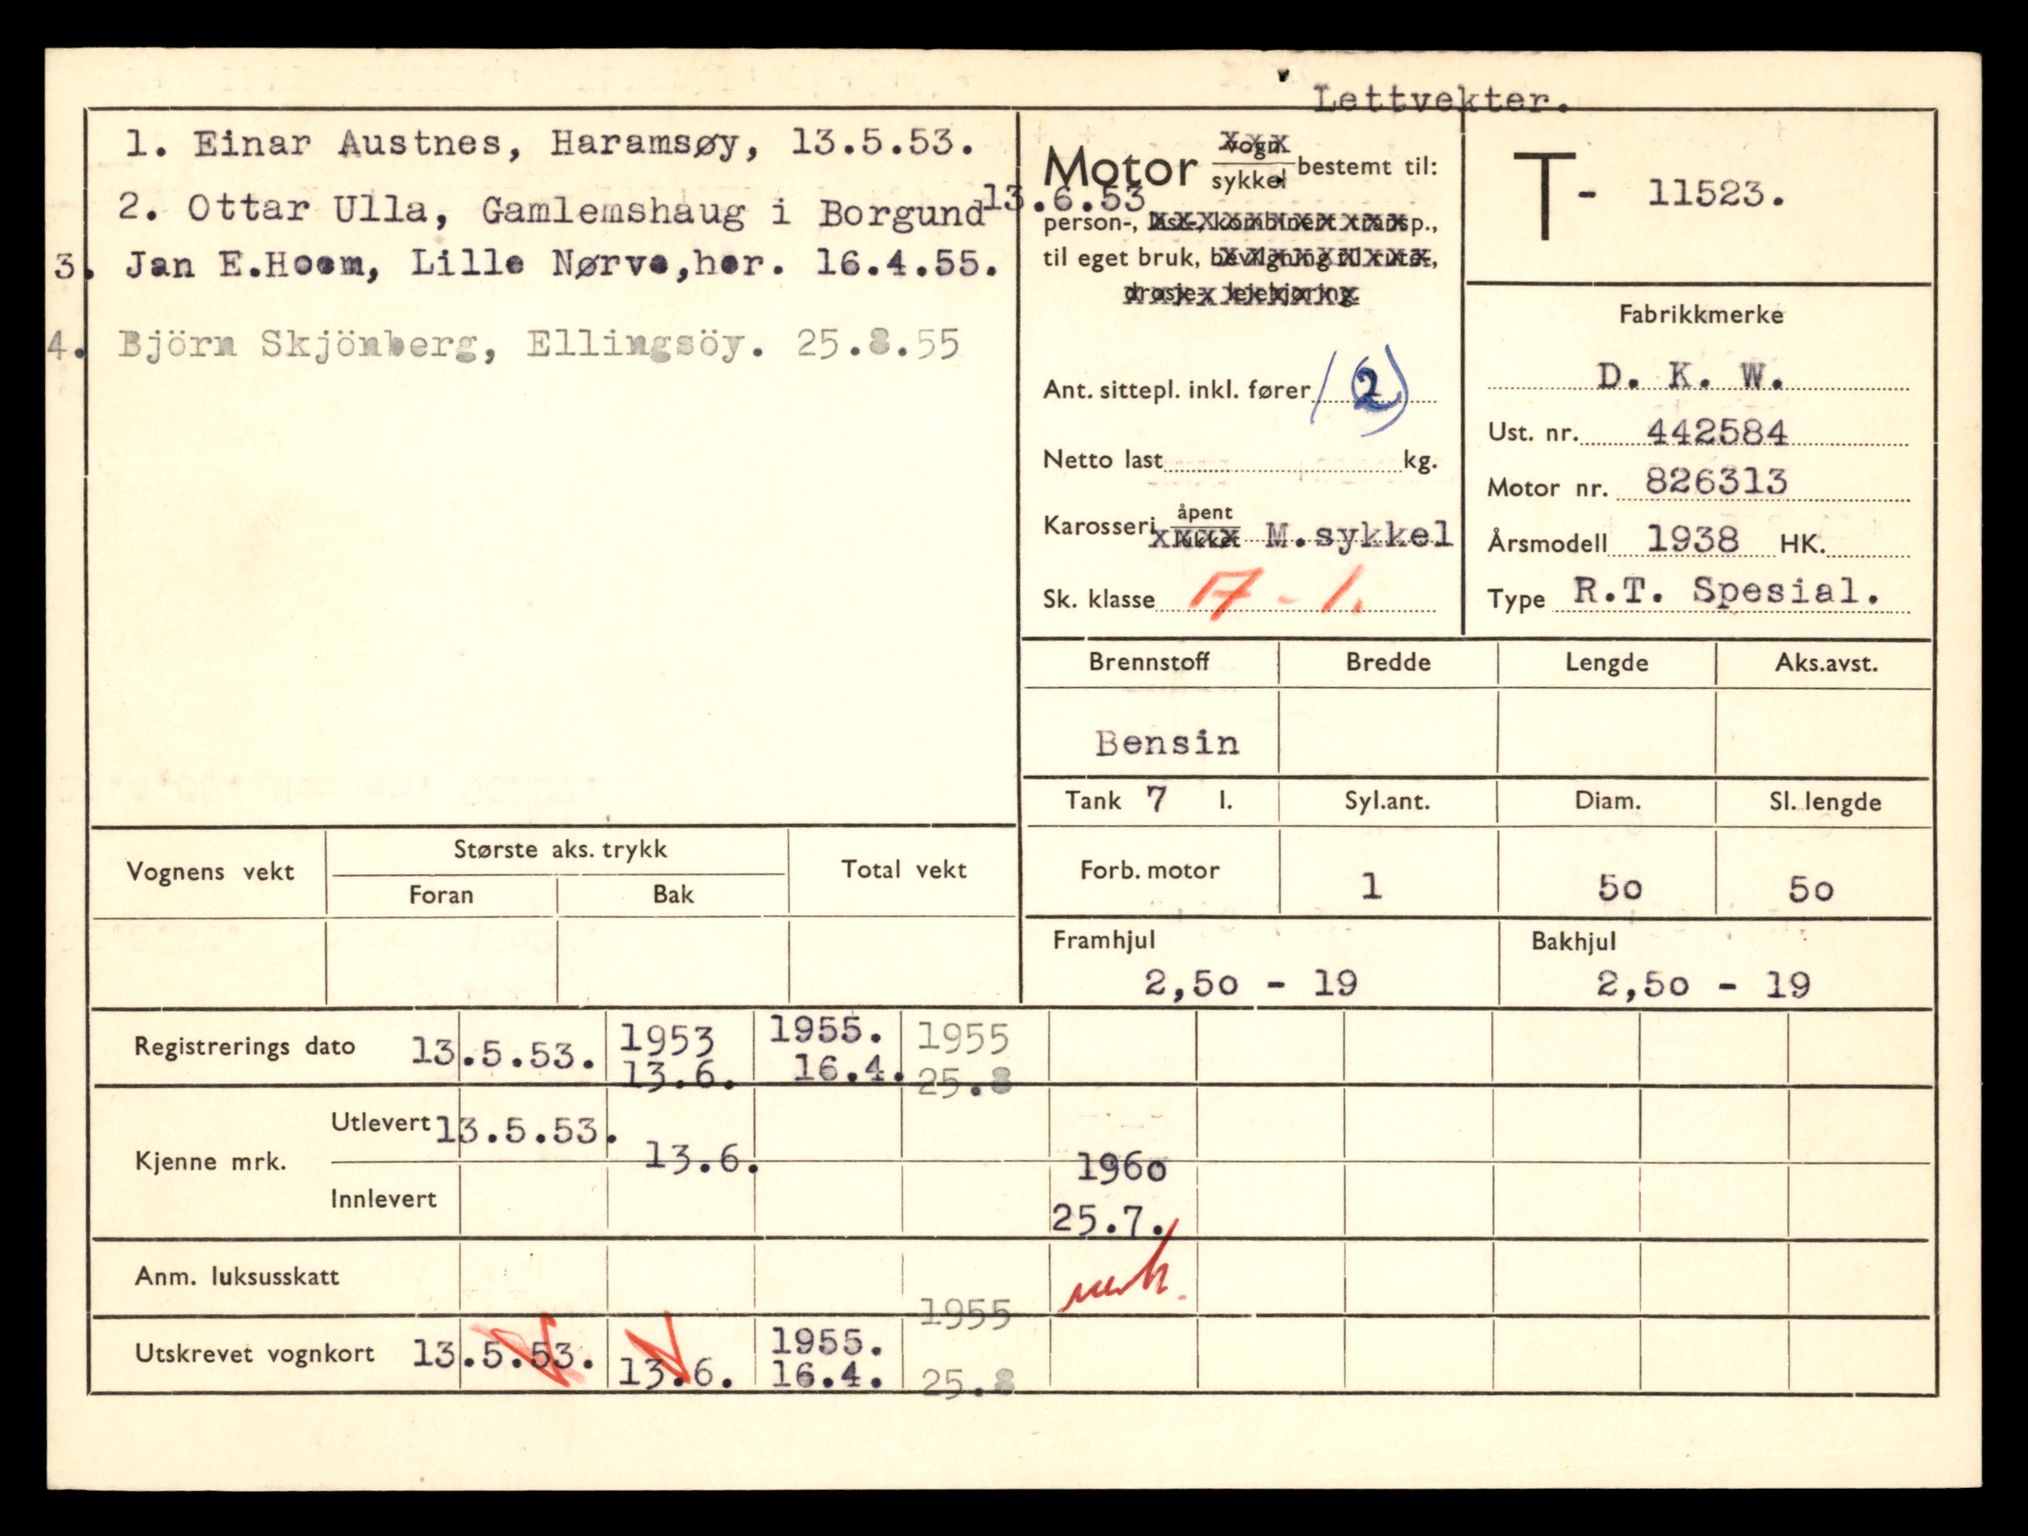 Lettvekter.
1. Einar Austnes, Haramsøy, 13.5.53.
2. Ottar Ulla, Gamlemshaug i Borgund 13.6.53
3. Jan E.Hoem, Lille Nørve,her. 16.4.55.
4. Björn Skjönberg, Ellingsöy. 25.8.55
Motor vogn sykkel bestemt til:
person-, laste-, kombinert transp.,
til eget bruk, bevilgning til rute-,
drosje- leiekjøring.
Ant. sittepl. inkl. fører (2)
Netto last kg.
Karosseri åpent lukket M.sykkel
Sk. klasse 17 - 1.
T- 11523.
Fabrikkmerke
D. K. W.
Ust. nr. 442584
Motor nr. 826313
Årsmodell 1938 HK.
Type R.T. Spesial.
Brennstoff Bredde Lengde Aks.avst.
Bensin
Tank 7 l. Syl.ant. Diam. Sl. lengde
Forb. motor 1 50 50
Framhjul Bakhjul
2,50 - 19 2,50 - 19
Vognens vekt Største aks. trykk Total vekt
Foran Bak
Registrerings dato 13.5.53. 1953 13.6. 1955. 16.4. 1955 25.8
Kjenne mrk. Utlevert 13.5.53. 13.6.
Innlevert 1960 25.7.
Anm. luksusskatt
Utskrevet vognkort 13.5.53. 13.6. 1955. 16.4. 1955 25.8